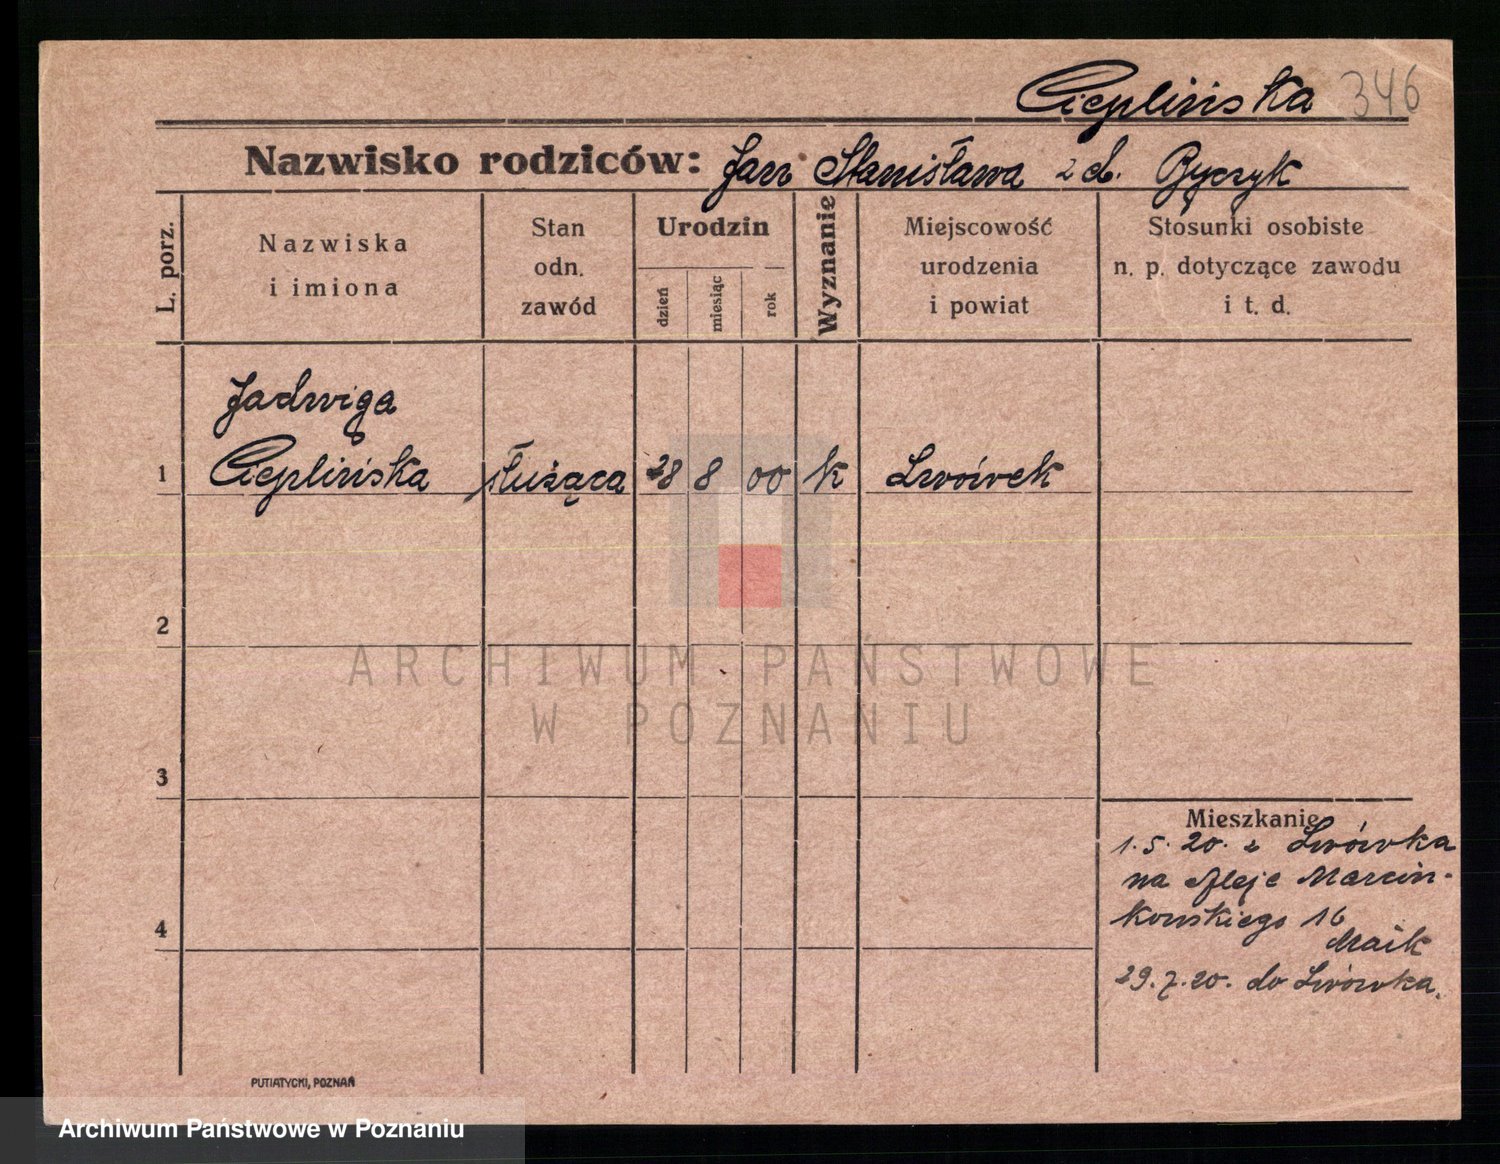 Cieplińska 346
Nazwisko rodziców: Jan Stanisława z d. Byczyk
L. porz.
Nazwiska
i imiona
Stan
odn.
zawód
Urodzin
dzień
miesiąc
rok
Wyznanie
Miejscowość
urodzenia
i powiat
Stosunki osobiste
n. p. dotyczące zawodu
i t. d.
Jadwiga
1 Cieplińska służąca 28 8 00 k Lwówek
2
ARCHIWUM PAŃSTWOWE
W POZNANIU
3
4
Mieszkanie
1.5.20. z Lwówka
na Aleje Marcin-
kowskiego 16
Maik
29.7.20. do Lwówka.
PUTIATYCKI, POZNAŃ
Archiwum Państwowe w Poznaniu